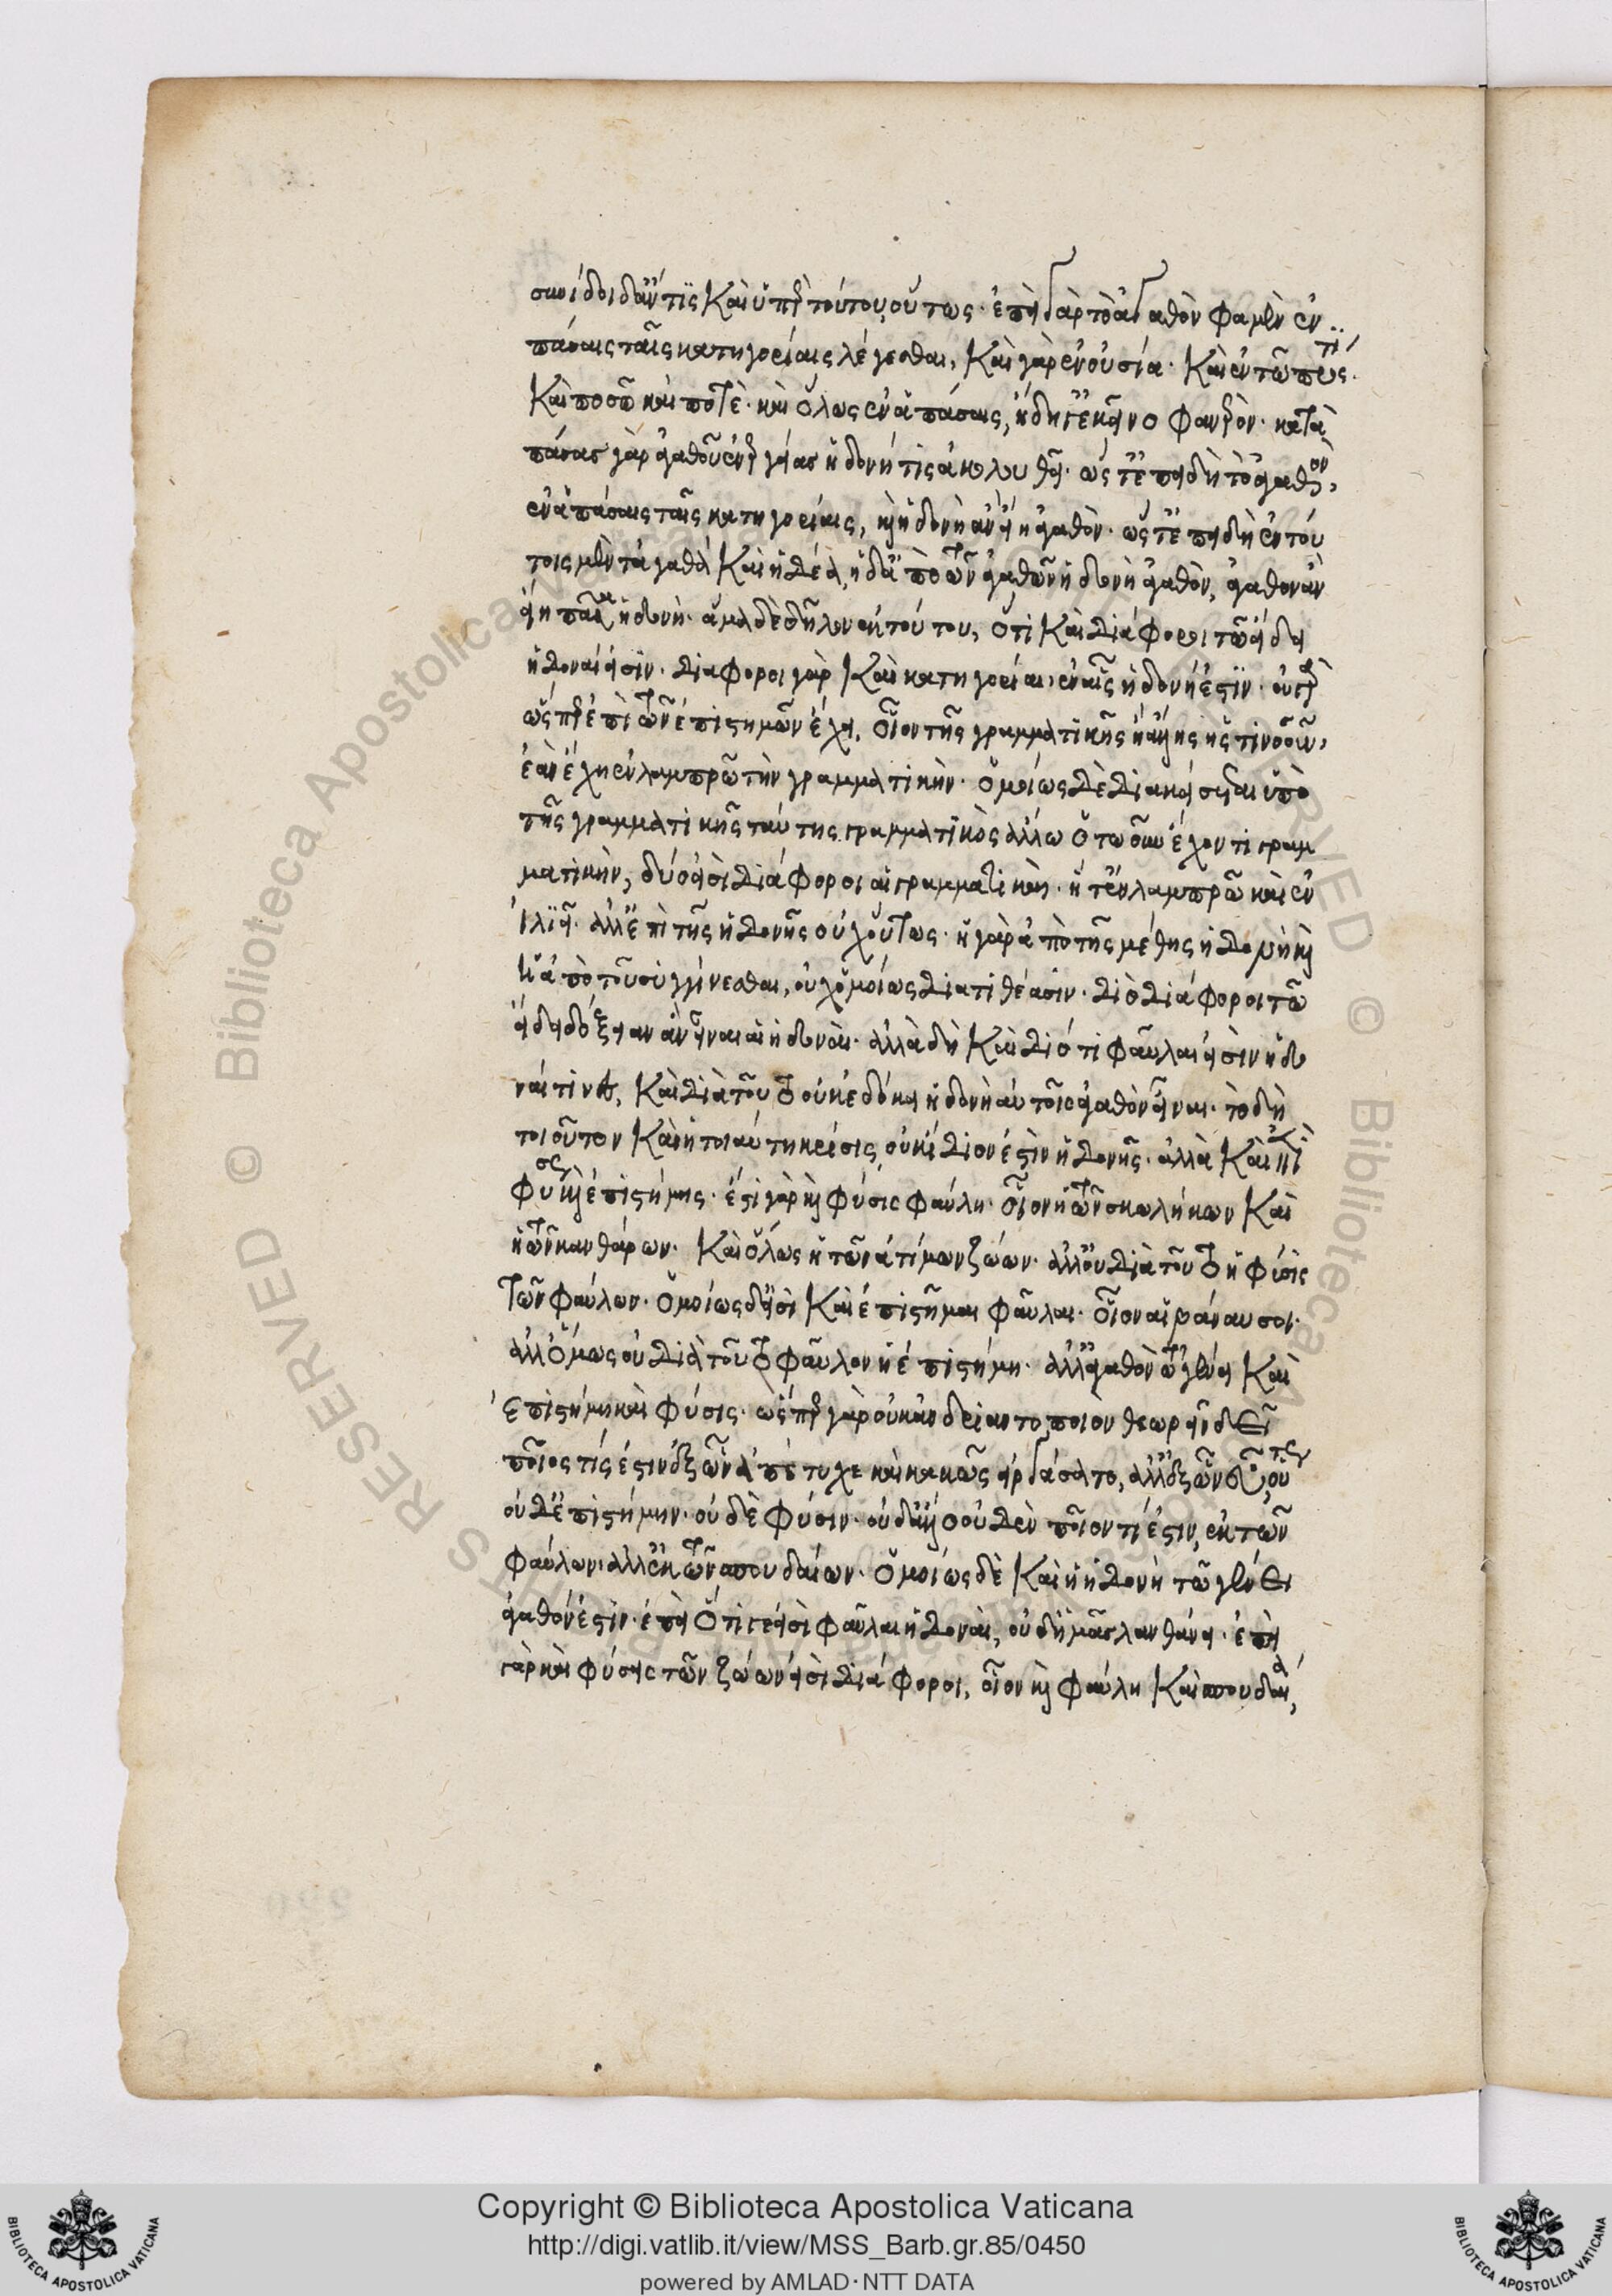 συνίδοι δ' ἄν τις καὶ ὑπὲρ τούτου, οὕτως· ἐπεὶ γὰρ τὸ ἀγαθὸν φαμὲν ἐν
πάσαις ταῖς κατηγορίαις λέγεσθαι, καὶ γὰρ ἐν οὐσία· καὶ ἐν τῶ πρός τι
καὶ ποσῶ καὶ ποτὲ· καὶ ὅλως ἐν ἁπάσαις, ἤδη γε κἀκεῖνο φανερὸν· κατὰ
πάσας γὰρ ἀγαθοῦ ἐνεργείας ἡδονή τις ἀκολουθεῖ· ὥστ' ἐπειδὴ τὸ ἀγαθὸν,
ἐν ἁπάσαις ταῖς κατηγορίαις, καὶ ἡδονὴ ἂν εἴη ἀγαθὸν· ὥστ' ἐπειδὴ ἐν τού
τοις μὲν τἀγαθὰ καὶ ἡδέα, ἡ δ' ἀπὸ τῶν ἀγαθῶν ἡδονὴ ἀγαθὸν, ἀγαθὸν ἂν
εἴη πᾶσα ἡδονὴ· ἅμα δὲ δῆλον ἐκ τούτου, ὅτι καὶ διάφοροι τῶ εἴδει
ἡδοναί εἰσιν· διάφοροι γὰρ καὶ κατηγορίαι, ἐν αἷς ἡδονή ἐστιν· οὐ γὰρ
ὥσπερ ἐπὶ τῶν ἐπιστημῶν ἔχει, οἷον τῆς γραμματικῆς ἢ ἄλλης ἧς τινοσοῦν,
ἐὰν ἔχη ἐν λαμπρῶ τὴν γραμματικὴν· ὁμοίως δὲ διακείσεται ὑπὸ
τῆς γραμματικῆς ταύτης γραμματικὸς ἄλλω ὁτωοῦν ἔχοντι γραμ
ματικὴν, δύο εἰσὶ διάφοροι αἱ γραμματικαὶ· ἥ τ' ἐν λαμπρῶ καὶ ἐν
ἰλϊεῖ· ἀλλ' ἐπὶ τῆς ἡδονῆς οὐχ οὕτως· ἡ γὰρ ἀπὸ τῆς μέθης ἡδονὴ καὶ
ἡ ἀπὸ τοῦ συγγίνεσθαι, οὐχ ὁμοίως διατιθέασιν· διὸ διάφοροι τῶ
εἴδει δόξειαν ἂν εἶναι αἱ ἡδοναὶ· ἀλλὰ δὴ καὶ διότι φαῦλαι εἰσὶν ἡδο
ναί τινες, καὶ διὰ τοῦτο οὐκ ἐδόκει ἡδονὴ αὐτοῖς ἀγαθὸν εἶναι· τὸ δὴ
τοιοῦτον καὶ ἡ τοιαύτη κρίσις, οὐκ ἴδιον ἐστὶν ἡδονῆς· ἀλλὰ καὶ ἐπὶ
φύσεως καὶ ἐπιστήμης· ἔστι γὰρ καὶ φύσις φαύλη· οἷον ἡ τῶν σκωλήκων καὶ
ἡ τῶν κανθάρων· καὶ ὅλως ἡ τῶν ἀτίμων ζώων· ἀλλ' οὐ διὰ τοῦτο ἡ φύσις
τῶν φαύλων· ὁμοίως δ' εἰσὶ καὶ ἐπιστῆμαι φαῦλαι· οἷον αἱ βάναυσοι·
ἀλλ' ὅμως οὐ διὰ τοῦτο φαῦλον ἡ ἐπιστήμη· ἀλλ' ἀγαθὸν τῶ γένει καὶ
ἐπιστήμη καὶ φύσις· ὥσπερ γὰρ οὐκ ἀνδριαντοποιὸν θεωρεῖν δεῖ
ποῖος τίς ἐστιν ἐξ ὧν ἀπέτυχε καὶ κακῶς εἰργάσατο, ἀλλ' ἐξ ὧν εὖ, οὕτως
οὐδ' ἐπιστήμην· οὐδὲ φύσιν· οὐδ' ἄλλο οὐδὲν ποῖον τί ἐστιν, ἐκ τῶν
φαύλων· ἀλλ' ἐκ τῶν σπουδαίων· ὁμοίως δὲ καὶ ἡ ἡδονὴ τῶ γένει
ἀγαθόν ἐστιν· ἐπεὶ ὅτι γε εἰσὶ φαῦλαι ἡδοναὶ, οὐδ' ἡμᾶς λανθάνει· ἐπεὶ
γὰρ καὶ φύσεις τῶν ζώων εἰσὶ διάφοροι, οἷον καὶ φαύλη καὶ σπουδαία,
Copyright © Biblioteca Apostolica Vaticana
http://digi.vatlib.it/view/MSS_Barb.gr.85/0450
powered by AMLAD·NTT DATA